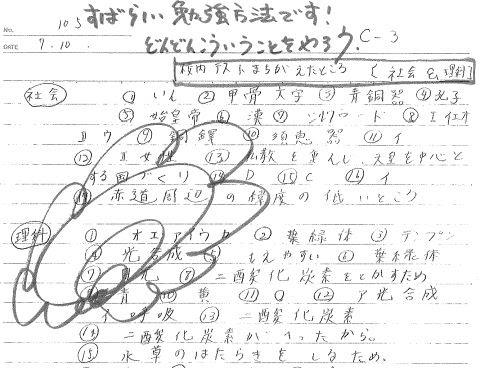 No. 105
すばらしい勉強方法です!
DATE 7.10.
どんどんこういうことをやろう。 C-3
校内テストまちがえたところ [社会&理科]
社会 ① いん ② 甲骨文字 ③ 青銅器 ④ 孔子
⑤ 始皇帝 ⑥ 漢 ⑦ シルクロード ⑧ Ⅰ イエオ
Ⅱ ウ ⑨ 銅鐸 ⑩ 須恵器 ⑪ イ
⑫ 女 ⑬ 仏教を 天皇を中心と
する国づくり ⑭ D ⑮ C ⑯ イ
赤道周辺の 度の低いところ
理科 ① オエアイウカ ② 葉緑体 ③ デンプン
④ 光合成 ⑤ もえやすい ⑥ 葉緑体
⑦ 光 ⑧ 二酸化炭素をとかすため
⑨ 青 ⑩ 黄 ⑪ ⑫ ア光合成
イ呼吸 ⑬ 二酸化炭素
⑭ 二酸化炭素がへったから。
⑮ 水草のはたらきをしるため。